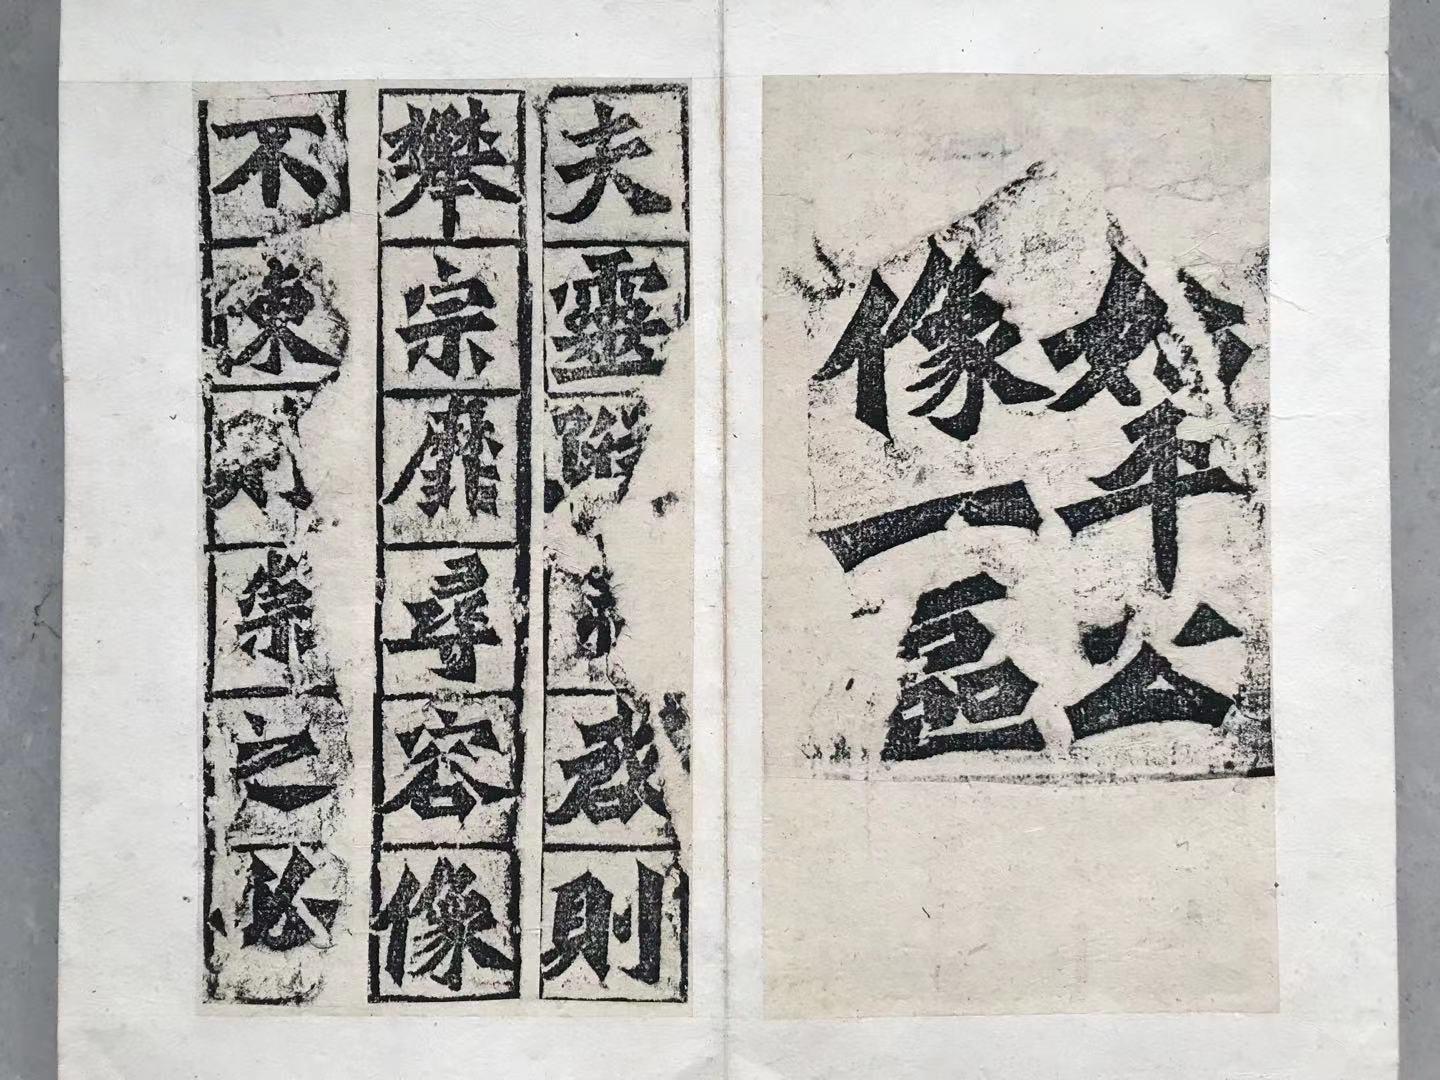 始平公
像一區
夫靈蹤啟則
攀宗靡尋容像
不陳則崇之必